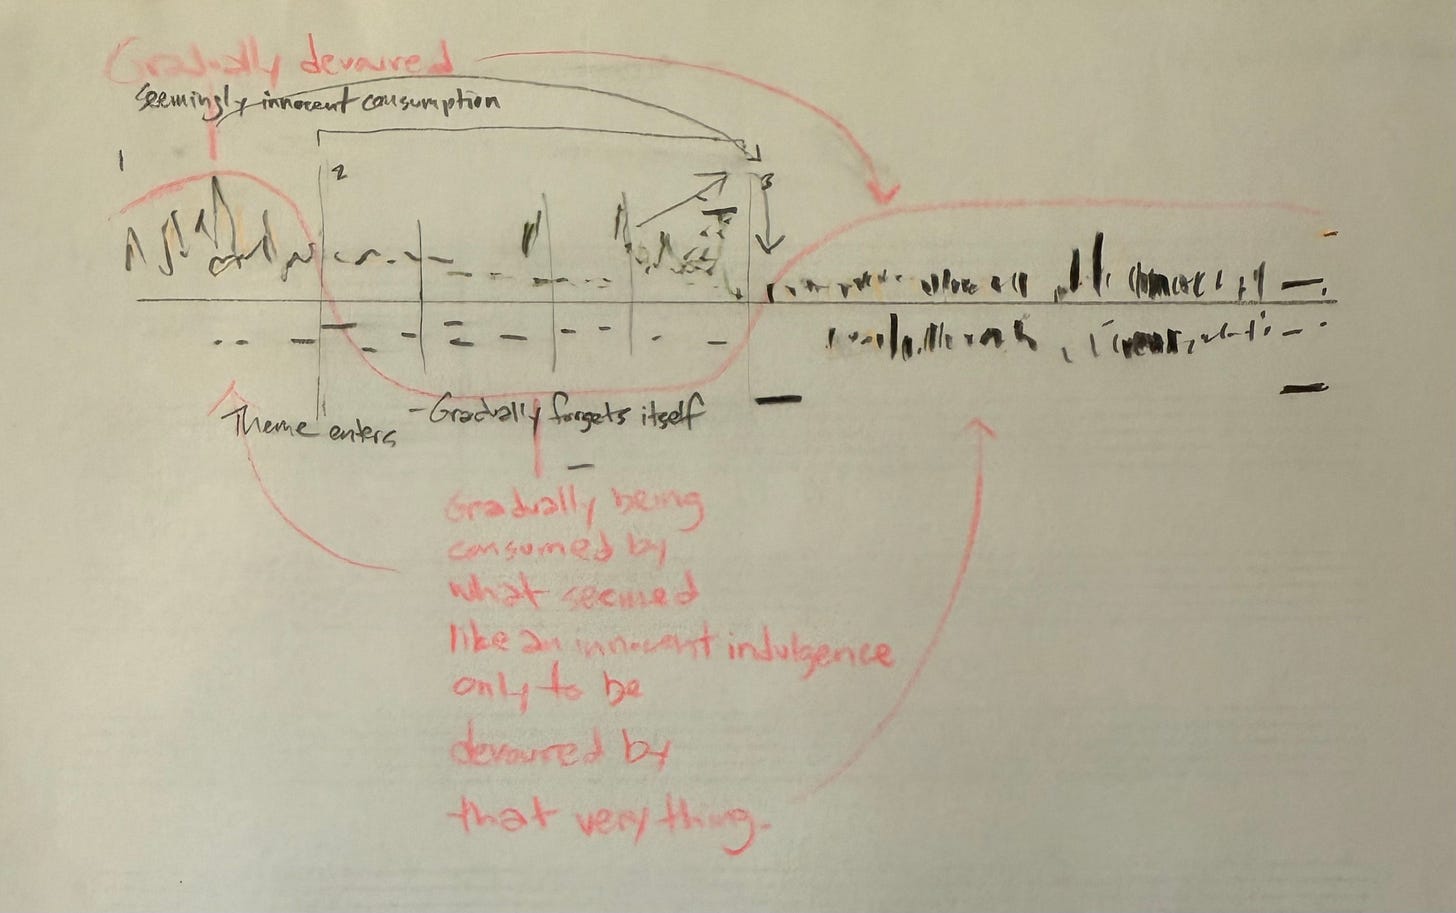 Gradually devoured
Seemingly innocent consumption
1
2
3
Theme enters
- Gradually forgets itself
Gradually being
consumed by
what seemed
like an innocent indulgence
only to be
devoured by
that very thing.